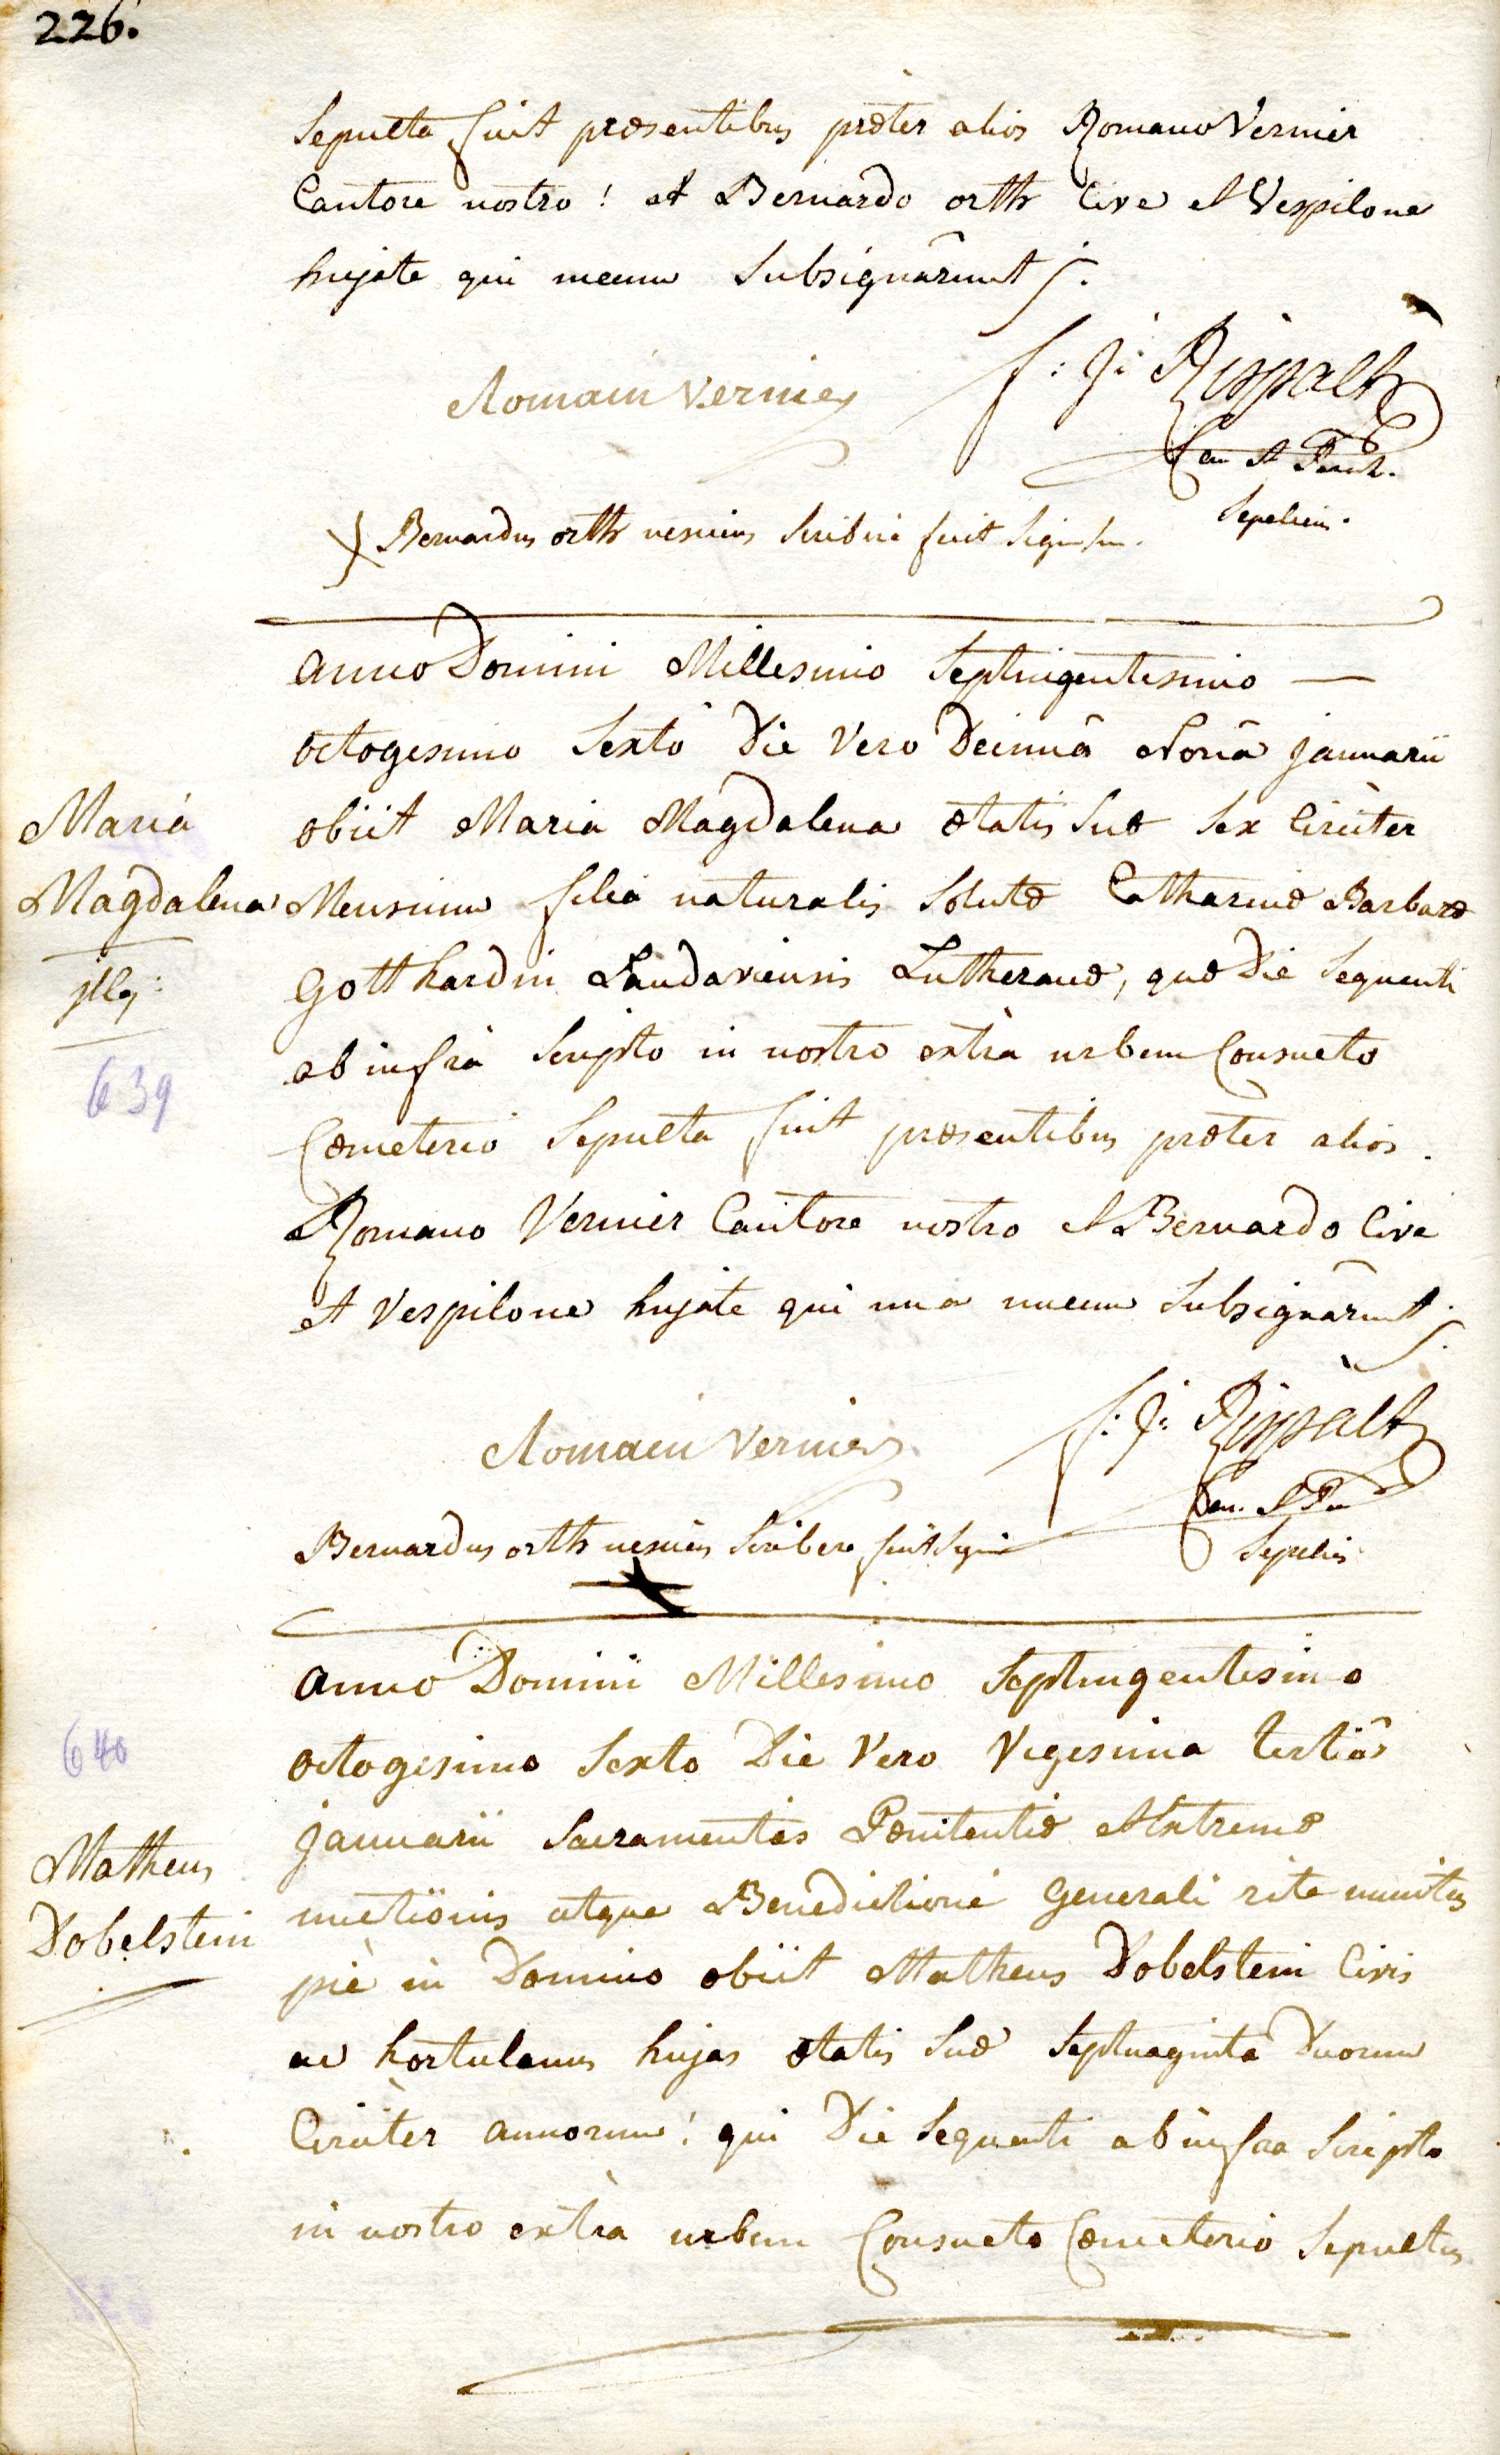 226.
Sepulta fuit præsentibus præter alios Romano Vernier
Cantore nostro! et Bernardo orth Cive et Vespilone
hujate qui mecum Subsignârunt ſ.
Romain Vernier
f: J: Rispalt
Can et Paroch.
Sepeliens.
Bernardus orth nescius scribere fecit signum.
anno Domini Millesimo Septingentesimo —
octogesimo Sexto Die Vero Decimâ Nonâ januarii
obiit Maria Magdalena ætatis suæ sex Circiter
Mensium filia naturalis Solutæ Catharinæ Barbaræ
Gotthardin Landaviensis Lutheranæ, quæ Die Sequenti
ab infra Scripto in nostro extrà urbem Consueto
Cœmeterio Sepulta fuit præsentibus præter alios.
Romano Vernier Cantore nostro et Bernardo Cive
et Vespilone hujate qui una mecum Subsignârunt ſ.
Maria
Magdalena
jlleg:
639
Romain Vernier
f: J: Rispalt
Can. et Par
Sepeliens
Bernardus orth nesciens Scribere fecit signum
anno Domini Millesimo Septingentesimo
octogesimo Sexto Die Vero Vigesima tertiâ
januarii Sacramentis Pœnitentiæ et Extremæ
unctionis atque Benedictione Generali rite munitus
piè in Domino obiit Matheus Dobelstein Civis
ac hortulanus hujas ætatis suæ Septuaginta Duorum
Circiter annorum! qui Die Sequenti ab infra Scripto
in nostro extrà urbem Consueto Cœmeterio Sepultus
640
Matheus
Dobelstein